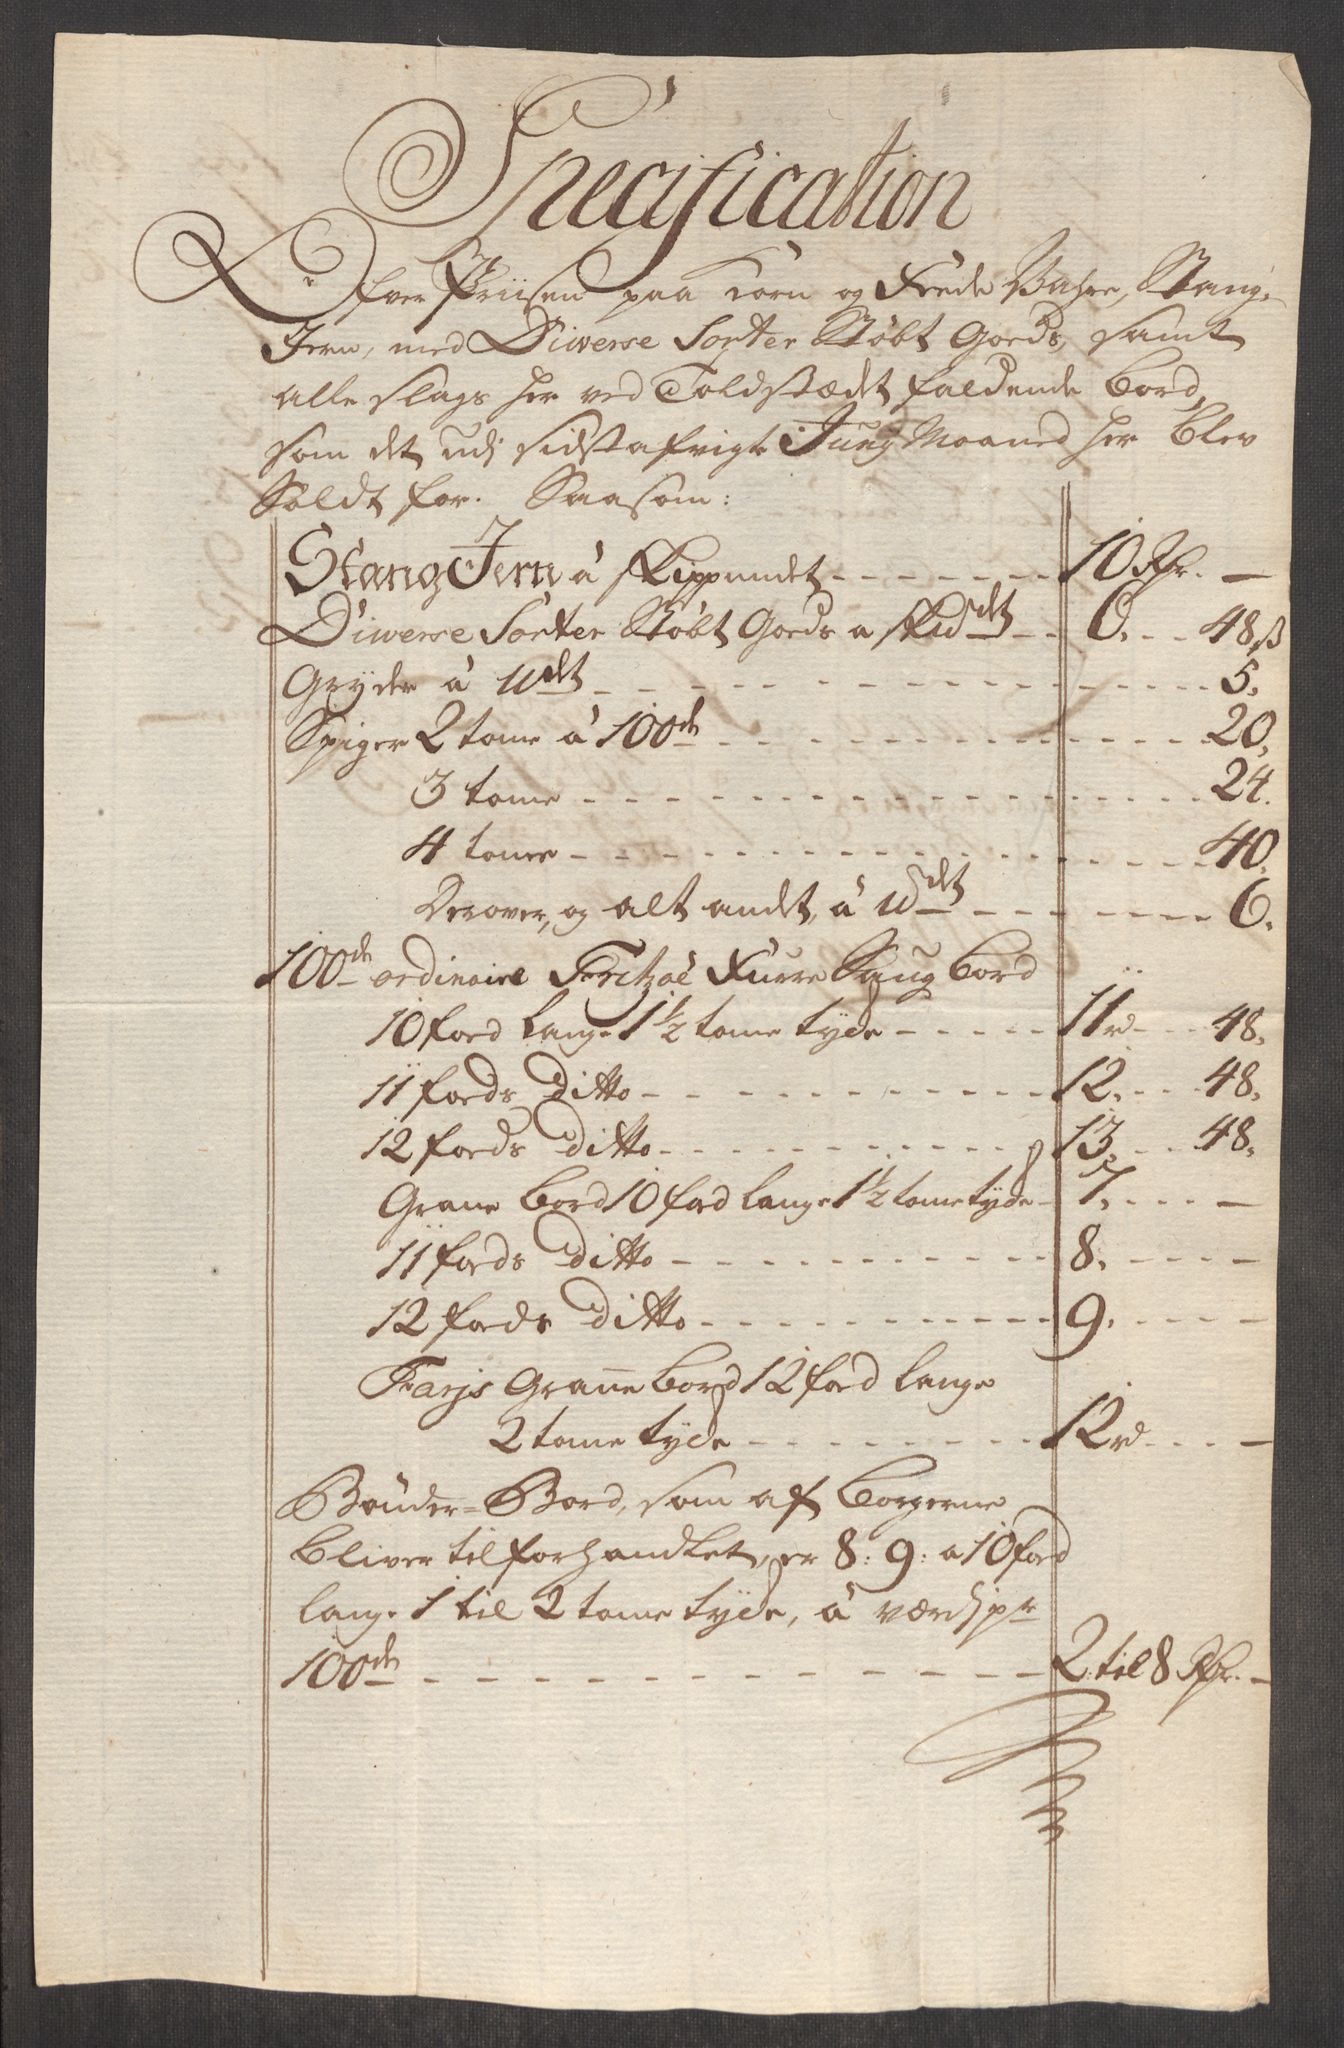 Specification
Ofver Priisen paa Korn og Fede Vahre, Stang-
Jern, med Diverse Sorter Støbt Goeds, samt
alle slags her ved Toldstædet faldende Bord,
som det udj sidstafvigte Junij Maaned her blev
Soldt for. Saasom:
Stang Jern â Skippundet 10 Rdr. —
Diverse Sorter Støbt Goeds a Skdꝉdet 6. 48 ß
Gryder â ꝉdet 5.
Spiger 2 tome â 100de 20.
3 tome 24.
4 tome 40.
Derover, og alt andet, â ꝉdet 6.
100de ordinaire Fritzøe Furre Saug bord
10 foed lange 1½ tome tyche 11rd 48.
11 foeds Ditto 12. 48.
12 foeds Ditto 13. 48.
Grane bord 10 foed lange 1½ tome tyche 7. —
11 foeds Ditto 8. —
12 foeds Ditto 9. —
Farjs Grane bord 12 foed lange
2 tome tyche 12rd —
Bønder-Bord, som af borgerne
bliver tilforhandlet, er 8: 9: a 10 foed
lange 1 til 2 tome tyche, â værdj pr
100de 2 til 8 Rdr. —